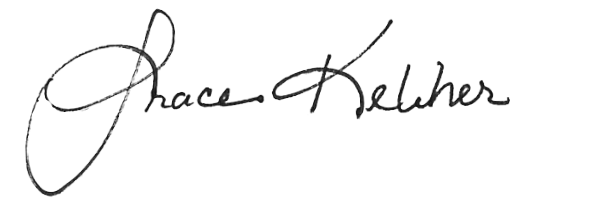 Grace Keliher